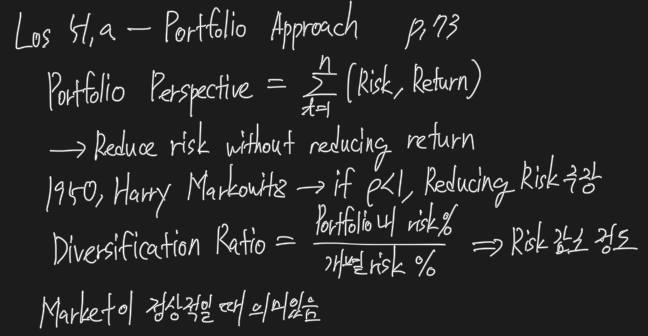 Los 51,a — Portfolio Approach p,73
Portfolio Perspective = n∑t=1 (Risk, Return)
→ Reduce risk without reducing return
1950, Harry Markowitz → if ρ<1, Reducing Risk 주장
Diversification Ratio = Portfolio 내 risk% / 개별 risk % ⇒ Risk 감소 정도
Market이 정상적일 때 의미있음